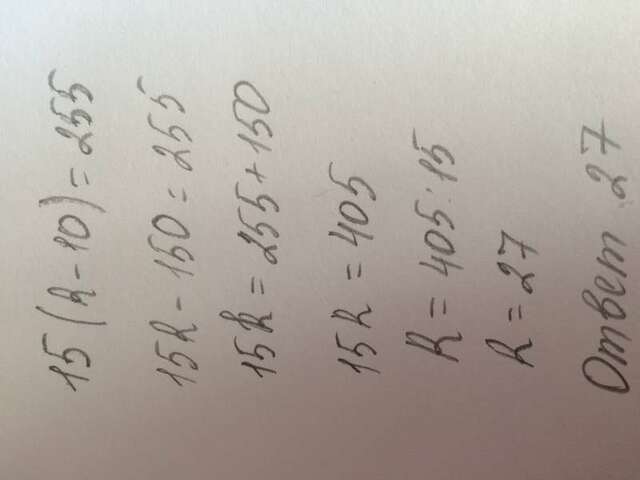 15(k-10)=255
15k-150=255
15k=255+150
15k=405
k=405:15
k=27
Ответ 27